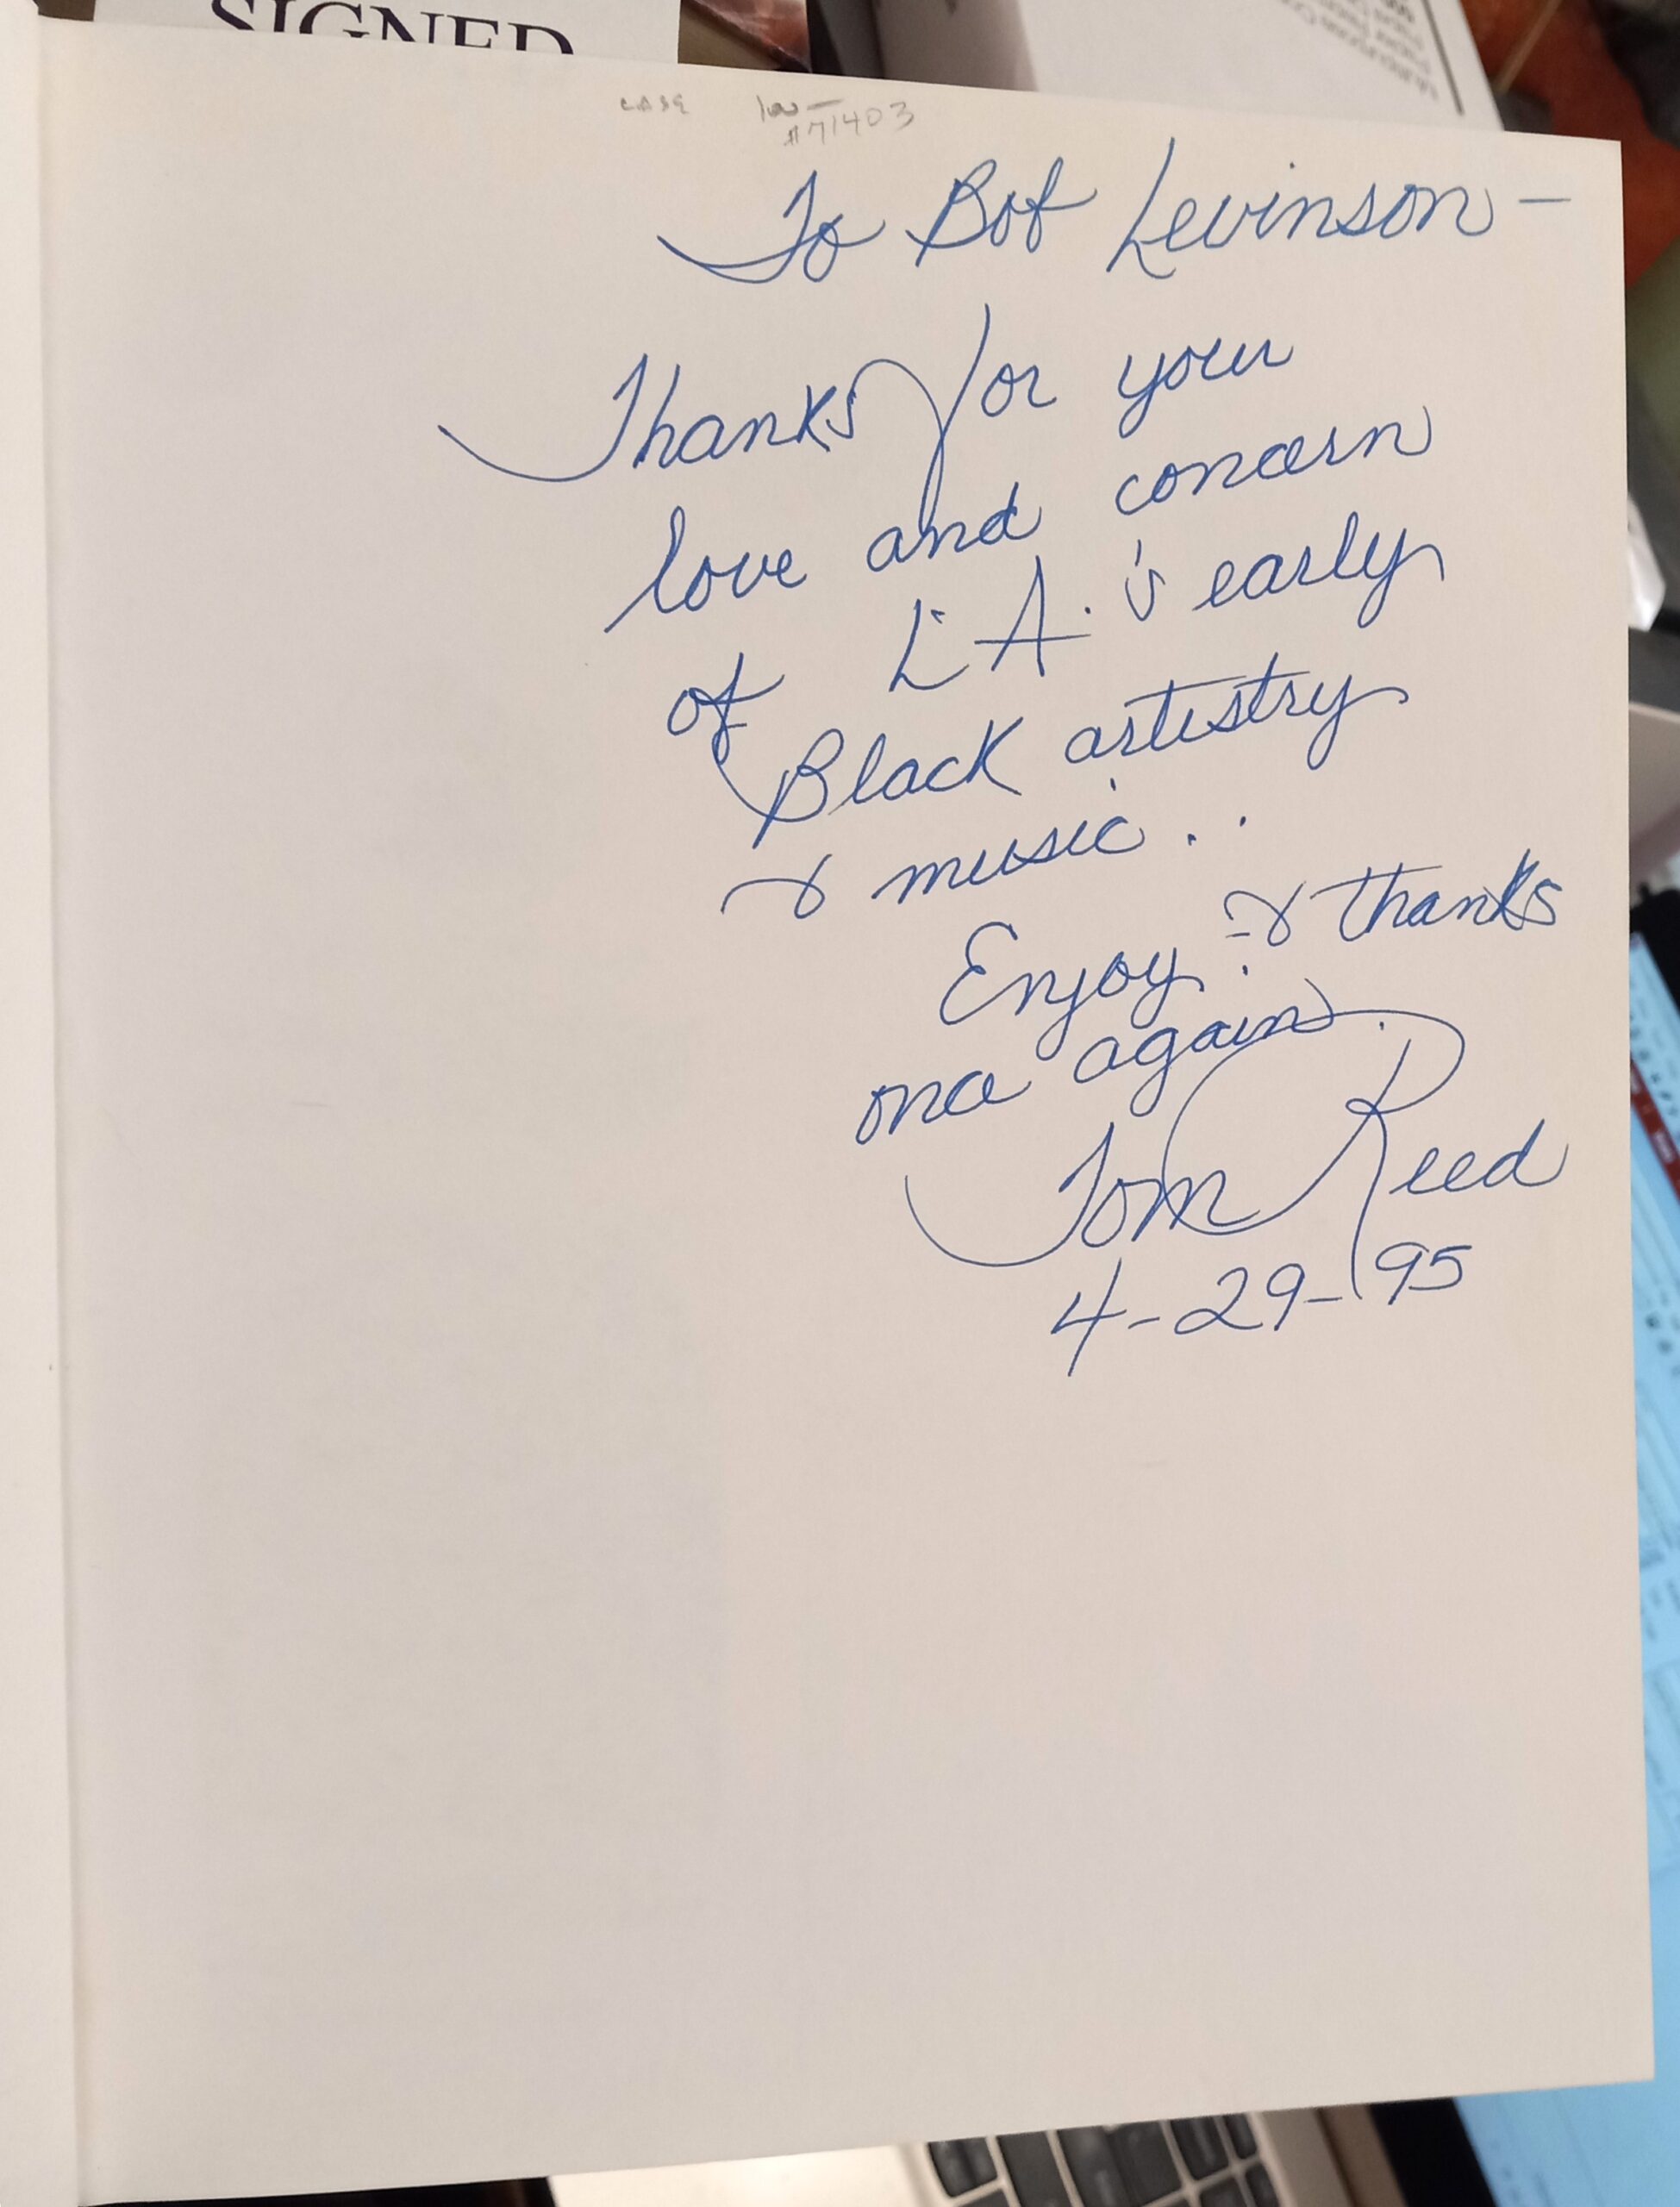 SIGNED
CASE 100—
#71403
To Bob Levinson —
Thanks for your
love and concern
of L.A.'s early
Black artistry
& music...
Enjoy & thanks
once again.
Tom Reed
4-29-95